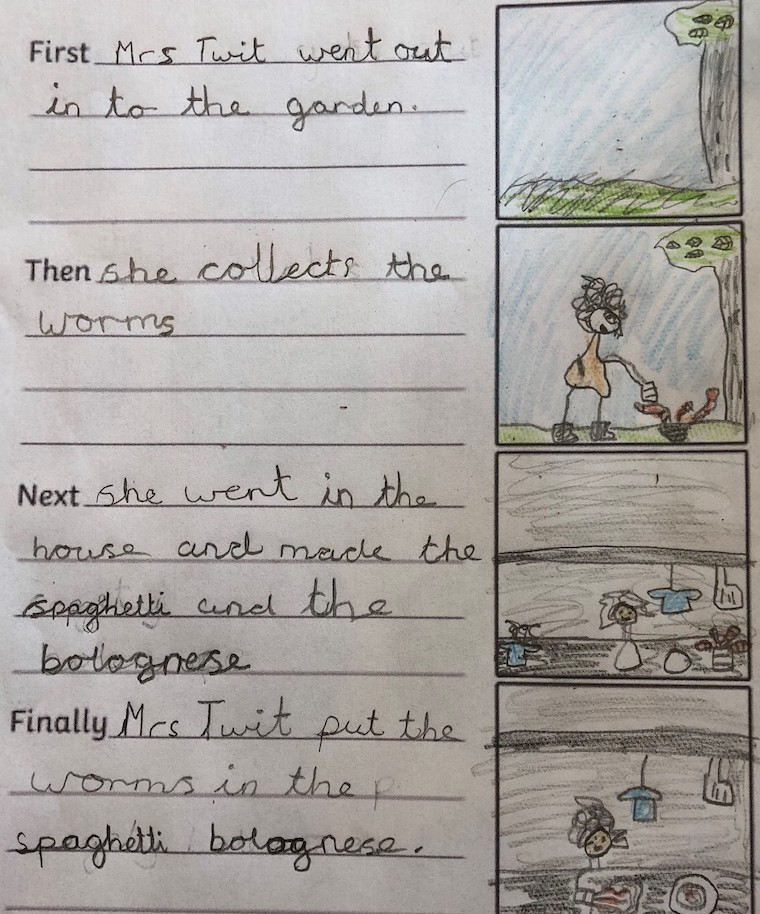 First Mrs Twit went out
in to the garden.
Then she collects the
worms
Next she went in the
house and made the
spaghetti and the
bolognese
Finally Mrs Twit put the
worms in the
spaghetti bolognese.